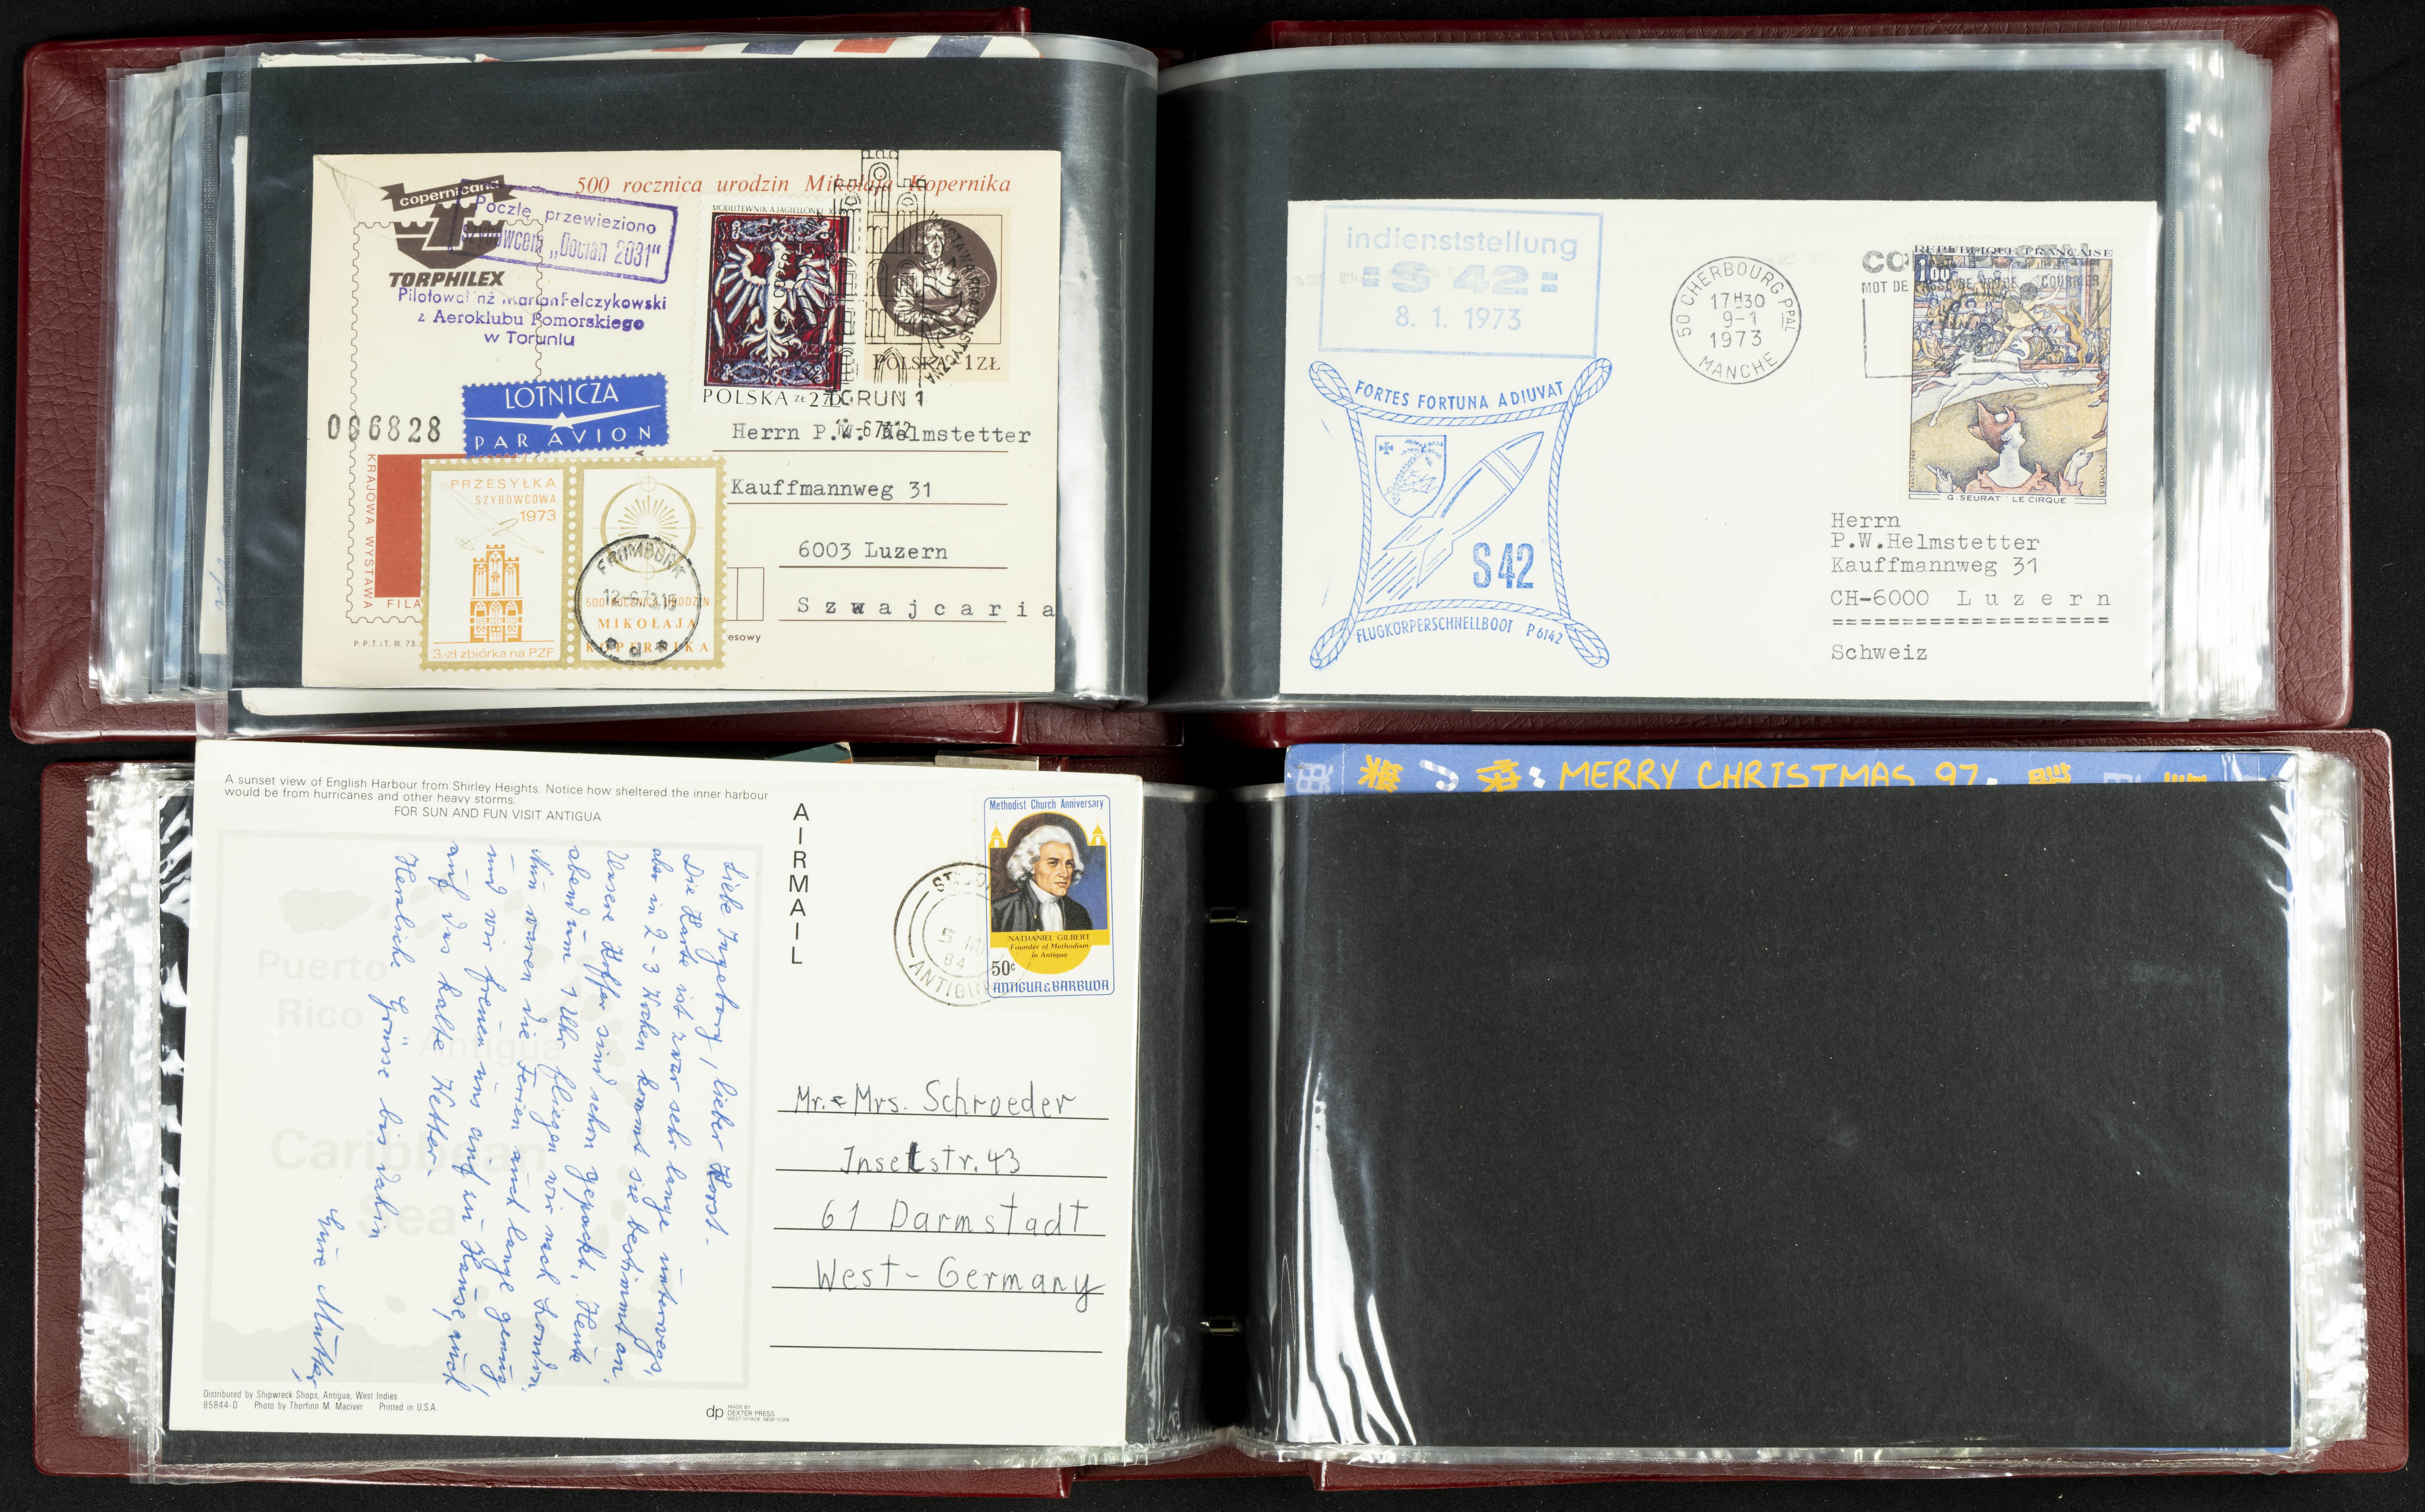 copernicana
TORPHILEX
500 rocznica urodzin Mikołaja Kopernika
Pocztę przewieziono
szybowcem „Bocian 2031"
Pilotował inż Marian Felczykowski
z Aeroklubu Pomorskiego
w Toruniu
MODLITEWNIK A JAGIELLONKI
POLSKA ZŁ
POLSKA 1 ZŁ
TORUN 1
LOTNICZA
PAR AVION
006828
KRAJOWA WYSTAWA
FILA
P.P.T.iT. III. 73.
PRZESYŁKA
SZYBOWCOWA
1973
3.-zł zbiórka na PZF
500 ROCZNICA URODZIN
MIKOŁAJA
KOPERNIKA
FROMBORK
Herrn P.W. Helmstetter
Kauffmannweg 31
6003 Luzern
Szwajcaria
esowy
indienststellung
:S 42:
8. 1. 1973
FORTES FORTUNA ADIUVAT
S42
FLUGKÖRPERSCHNELLBOOT P 6142
50 CHERBOURG PPAL
17H30
9-1
1973
MANCHE
MOT DE PASSE DE VOTRE COURRIER
REPUBLIQUE FRANÇAISE
1,00
POSTES
G. SEURAT LE CIRQUE
Herrn
P.W.Helmstetter
Kauffmannweg 31
CH-6000 Luzern
===================
Schweiz
A sunset view of English Harbour from Shirley Heights. Notice how sheltered the inner harbour
would be from hurricanes and other heavy storms.
FOR SUN AND FUN VISIT ANTIGUA
AIRMAIL
Puerto
Rico
Antigua
Caribbean
Sea
Liebe Ingeborg, lieber Horst.
Die Karte ist zwar sehr lange unterwegs,
aber in 2-3 Wochen kommt sie bestimmt an.
Unsere Koffer sind schon gepackt, Heute
abend um 7 Uhr fliegen wir nach London.
Nun waren die Ferien auch lange genug,
und wir freuen uns auf zu Hause, auch
auf das kalte Wetter.
Herzliche Grüsse bis dahin
Eure Mutter
Methodist Church Anniversary
NATHANIEL GILBERT
Founder of Methodism
in Antigua
50c
ANTIGUA & BARBUDA
84
ANTIGUA
Mr. & Mrs. Schroeder
Inselstr. 43
61 Darmstadt
West-Germany
Distributed by Shipwreck Shops, Antigua, West Indies
85844-D Photo by Thorfinn M. Maciver Printed in U.S.A.
dp MADE BY
DEXTER PRESS
WEST NYACK, NEW YORK
MERRY CHRISTMAS 97